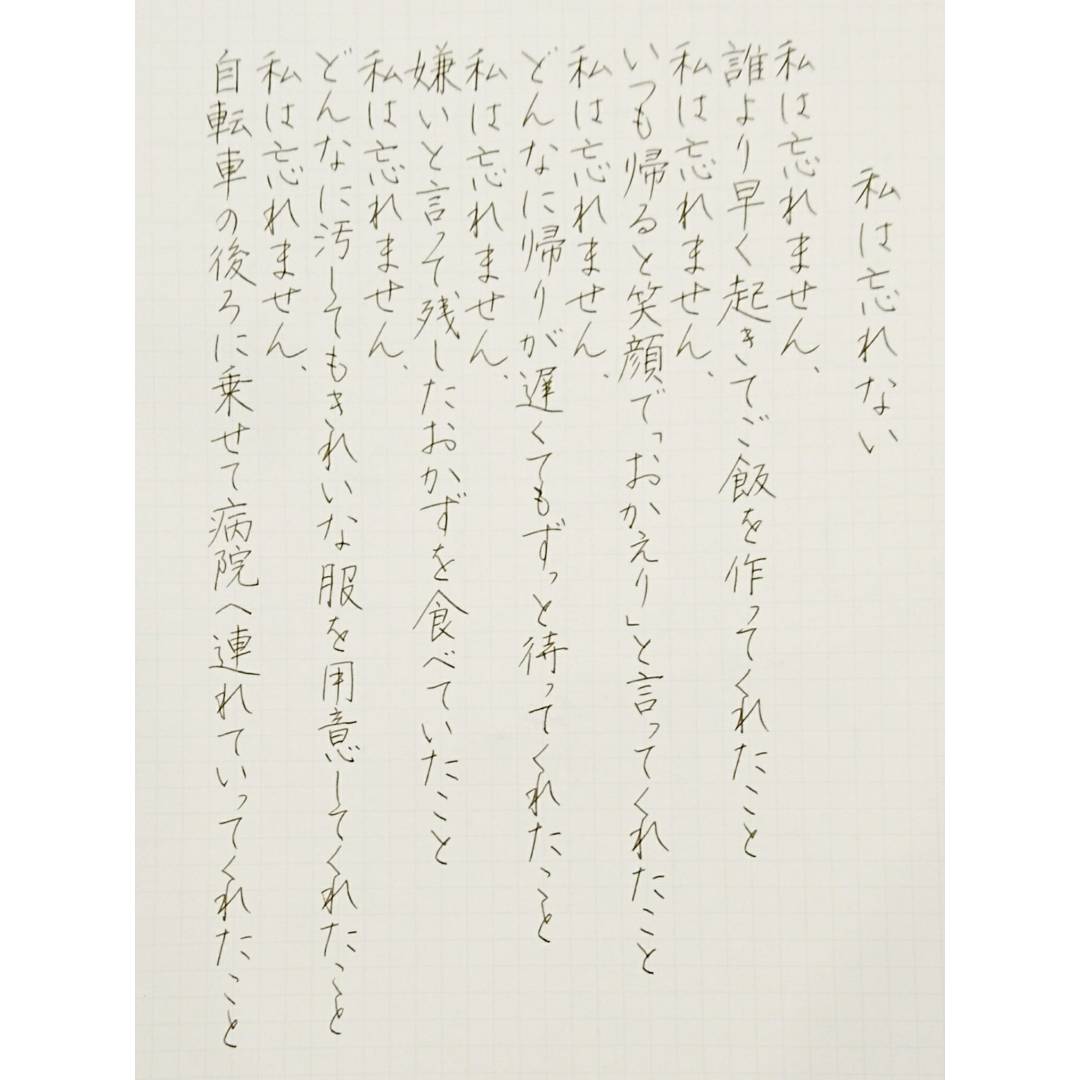 私は忘れない
私は忘れません、
誰より早く起きてご飯を作ってくれたこと
私は忘れません、
いつも帰ると笑顔で「おかえり」と言ってくれたこと
私は忘れません、
どんなに帰りが遅くてもずっと待ってくれたこと
私は忘れません、
嫌いと言って残したおかずを食べていたこと
私は忘れません、
どんなに汚してもきれいな服を用意してくれたこと
私は忘れません、
自転車の後ろに乗せて病院へ連れていってくれたこと